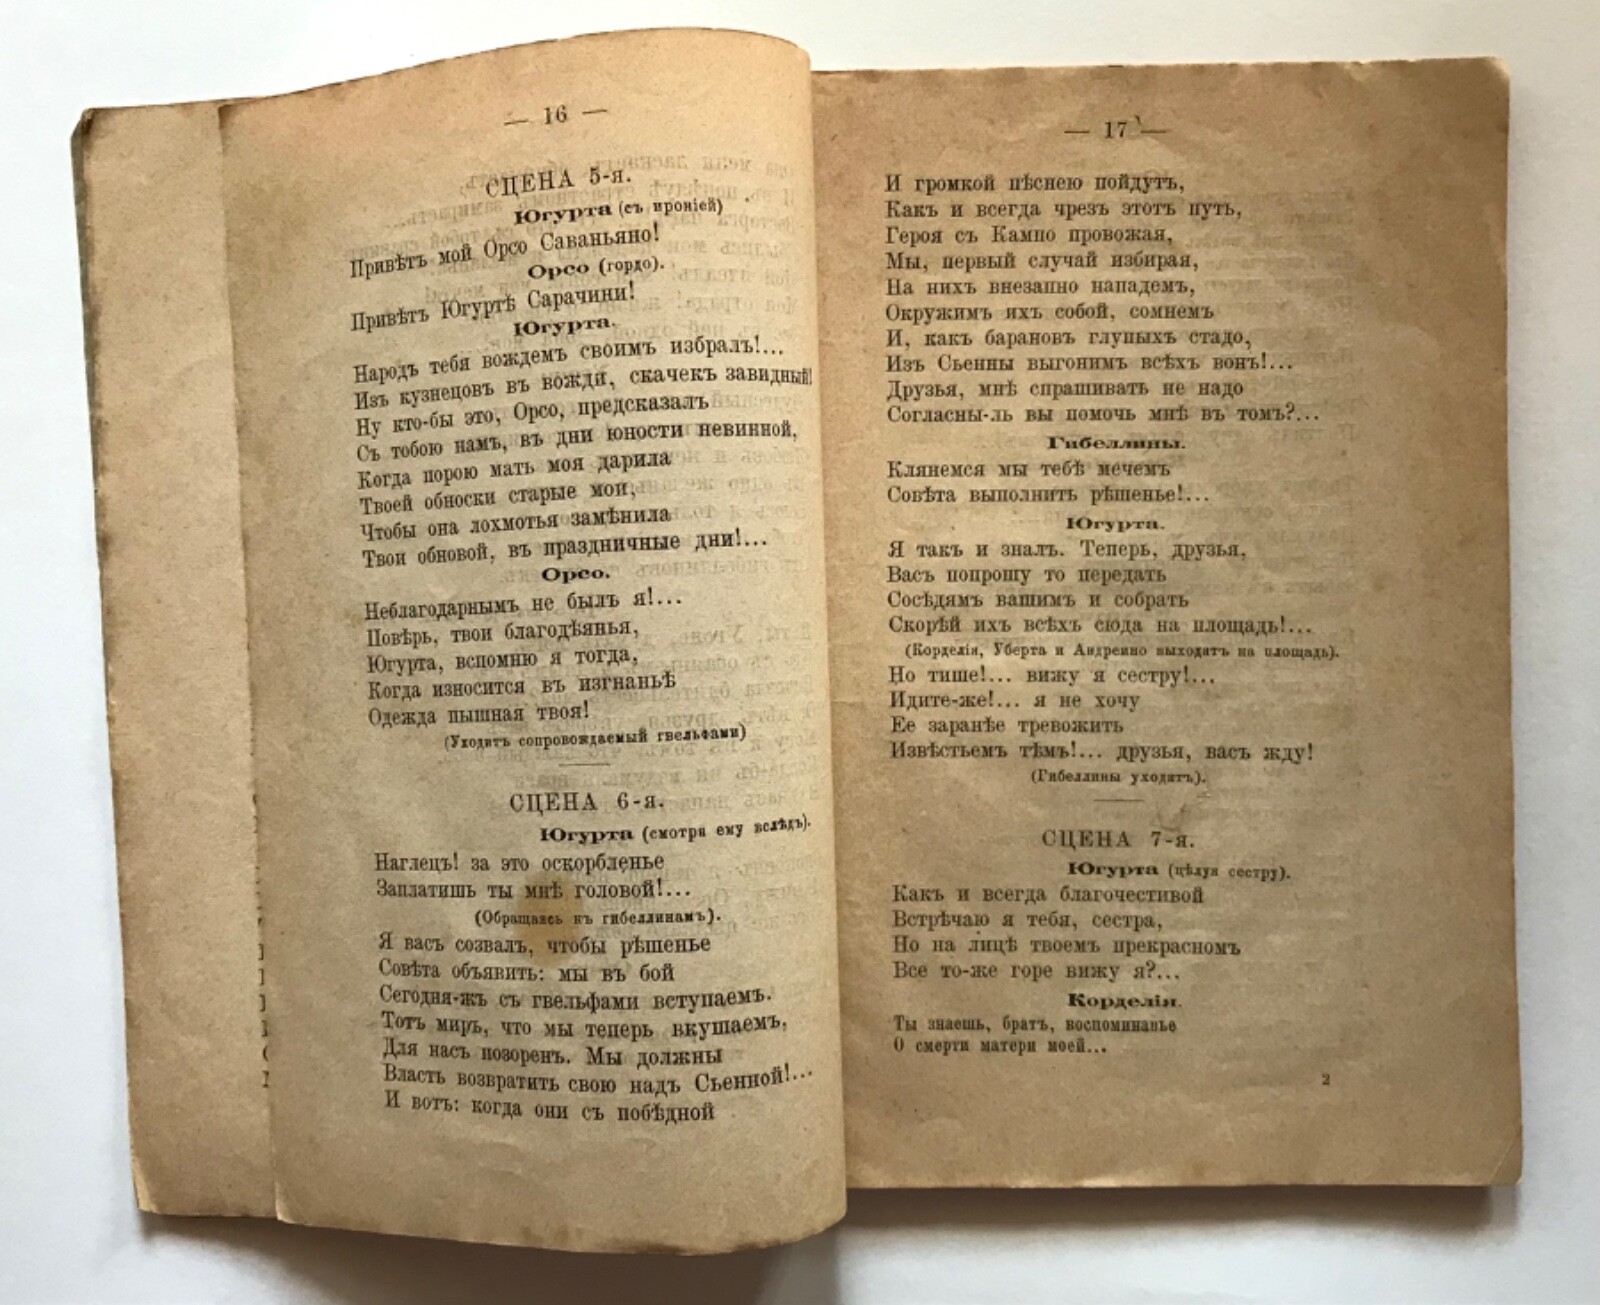 — 16 —
СЦЕНА 5-я.
Югурта (съ ироніей)
Привѣтъ мой Орсо Саваньяно!
Орсо (гордо).
Привѣтъ Югуртѣ Сарачини!
Югурта.
Народъ тебя вождемъ своимъ избралъ!...
Изъ кузнецовъ въ вожди, скачекъ завидный!
Ну кто-бы это, Орсо, предсказалъ
Съ тобою намъ, въ дни юности невинной,
Когда порою мать моя дарила
Твоей обноски старые мои,
Чтобы она лохмотья замѣнила
Твои обновой, въ праздничные дни!...
Орсо.
Неблагодарнымъ не былъ я!...
Повѣрь, твои благодѣянья,
Югурта, вспомню я тогда,
Когда износится въ изгнаньѣ
Одежда пышная твоя!
(Уходитъ сопровождаемый гвельфами)
СЦЕНА 6-я.
Югурта (смотря ему вслѣдъ).
Наглецъ! за это оскорбленье
Заплатишь ты мнѣ головой!...
(Обращаясь къ гибеллинамъ).
Я васъ созвалъ, чтобы рѣшенье
Совѣта объявить: мы въ бой
Сегодня-жъ съ гвельфами вступаемъ.
Тотъ миръ, что мы теперь вкушаемъ,
Для насъ позоренъ. Мы должны
Власть возвратить свою надъ Сьенной!...
И вотъ: когда они съ побѣдной
— 17 —
И громкой пѣснею пойдутъ,
Какъ и всегда чрезъ этотъ путь,
Героя съ Кампо провожая,
Мы, первый случай избирая,
На нихъ внезапно нападемъ,
Окружимъ ихъ собой, сомнемъ
И, какъ барановъ глупыхъ стадо,
Изъ Сьенны выгонимъ всѣхъ вонъ!...
Друзья, мнѣ спрашивать не надо
Согласны-ль вы помочь мнѣ въ томъ?...
Гибеллины.
Клянемся мы тебѣ мечемъ
Совѣта выполнить рѣшенье!...
Югурта.
Я такъ и зналъ. Теперь, друзья,
Васъ попрошу то передать
Сосѣдямъ вашимъ и собрать
Скорѣй ихъ всѣхъ сюда на площадь!...
(Корделія, Уберта и Андреино выходятъ на площадь).
Но тише!... вижу я сестру!...
Идите-же!... я не хочу
Ее заранѣе тревожить
Извѣстьемъ тѣмъ!... друзья, васъ жду!
(Гибеллины уходятъ).
СЦЕНА 7-я.
Югурта (цѣлуя сестру).
Какъ и всегда благочестивой
Встрѣчаю я тебя, сестра,
Но на лицѣ твоемъ прекрасномъ
Все то-же горе вижу я?...
Корделія.
Ты знаешь, братъ, воспоминанье
О смерти матери моей...
2